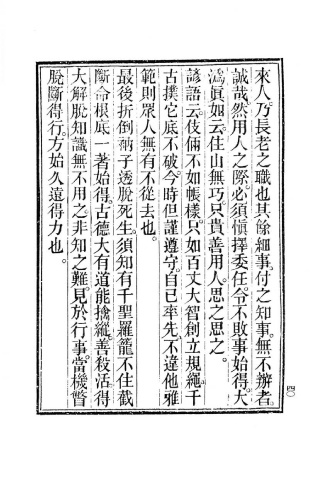 來人乃長老之職也其餘細事付之知事無不辦者
誠哉然用人之際必須愼擇委任令不敗事始得大
潙眞如云住山無巧只貴善用人思之思之
諺語云伎倆不如㨾樣只如百丈大智創立規繩千
古撲它底不破今時但謹遵守自己率先不違他雅
範則眾人無有不從去也
最後折倒衲子透脫死生須知有千聖羅籠不住截
斷命根底一著始得古德大有道能擒縱善殺活得
大解脫知識無不用之非知之難見於行事當機瞥
脫斷得行方始久遠得力也
四〇